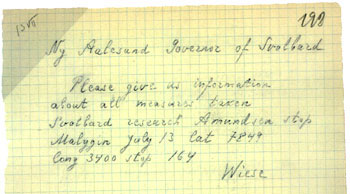 198
Ny Aalesand Governor of Svolbard
Please give us information
about all measures taken
Svolbard research Amundsen stop
Malygin July 13 lat 7849
long 3400 stop 164
Wiese